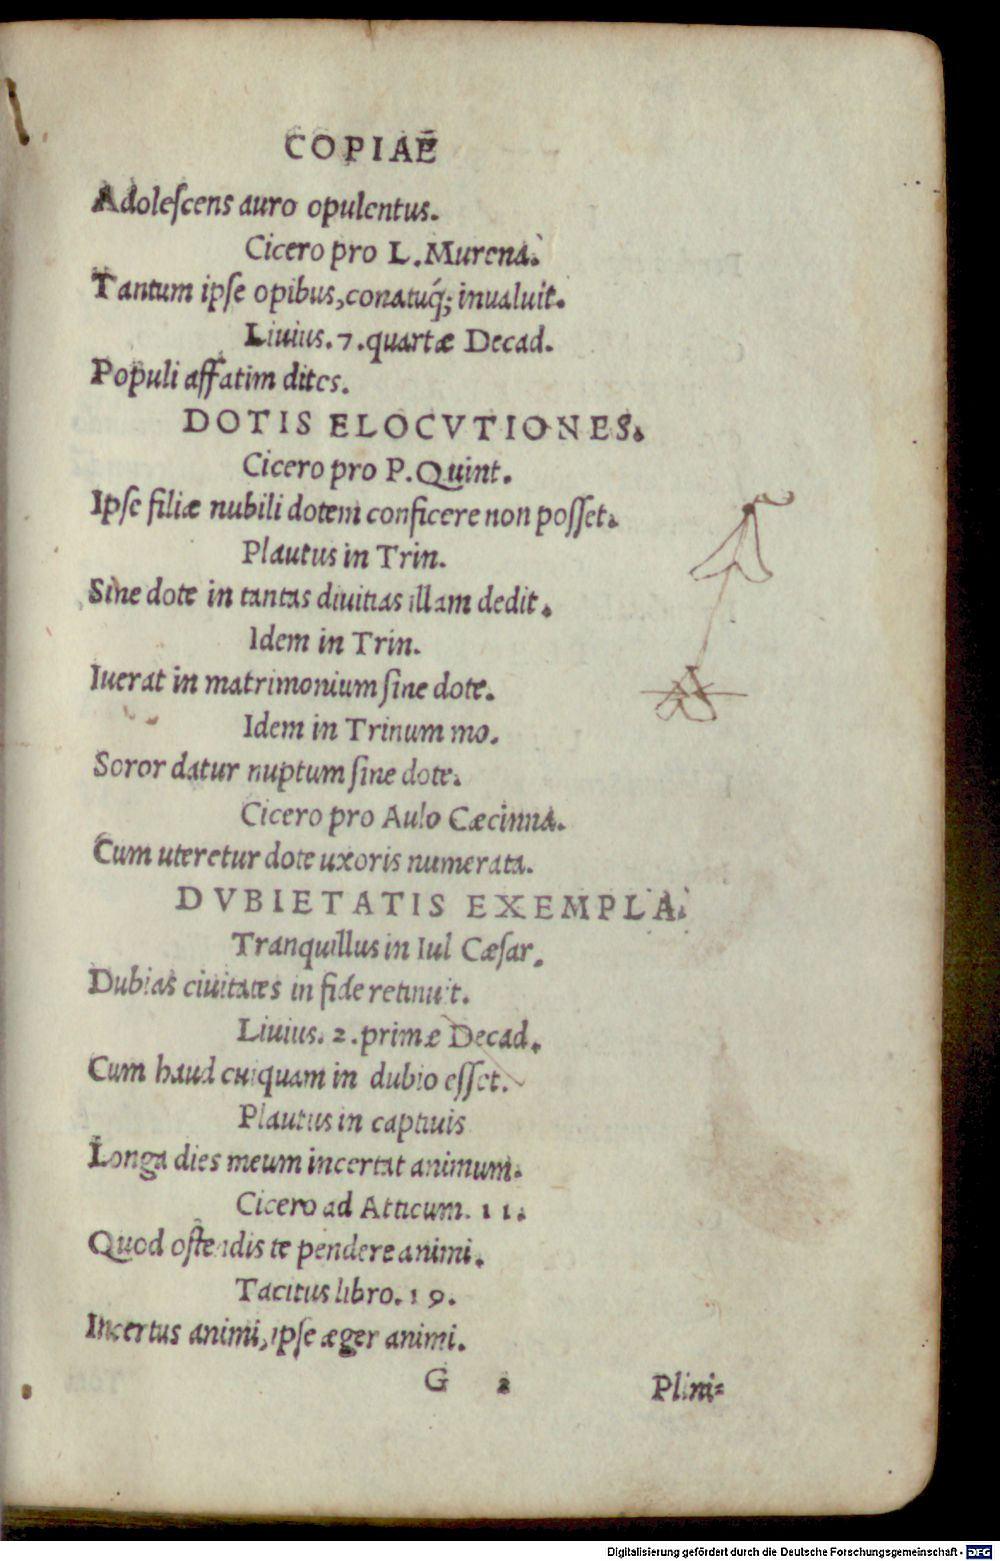 COPIAE
Adoleſcens auro opulentus.
Cicero pro L. Murena.
Tantum ipſe opibus, conatuq́; inualuit.
Liuius. 7. quartæ Decad.
Populi affatim dites.
DOTIS ELOCVTIONES.
Cicero pro P. Quint.
Ipſe filiæ nubili dotem conficere non poſſet.
Plautus in Trin.
Sine dote in tantas diuitias illam dedit.
Idem in Trin.
Iuerat in matrimonium ſine dote.
Idem in Trinum mo.
Soror datur nuptum ſine dote.
Cicero pro Aulo Cæcinna.
Cum uteretur dote uxoris numerata.
DVBIETATIS EXEMPLA.
Tranquillus in Iul Cæſar.
Dubias ciuitates in fide retinuit.
Liuius. 2. primæ Decad.
Cum haud cuiquam in dubio eſſet.
Plautus in captiuis
Longa dies meum incertat animum.
Cicero ad Atticum. 11.
Quod oſtendis te pendere animi.
Tacitus libro. 19.
Incertus animi, ipſe æger animi.
G 2 Plini=
Digitalisierung gefördert durch die Deutsche Forschungsgemeinschaft - DFG